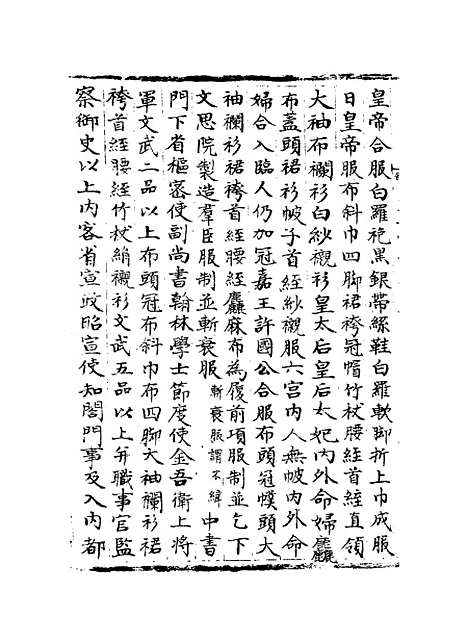 皇帝合服白羅袍黑銀帶絲鞋白羅軟脚折上巾成服
日皇帝服布斜巾四脚裙袴冠帽竹杖腰絰首絰直領
大袖布襴衫白紗襯衫皇太后皇后太妃内外命婦麤
布蓋頭裙衫帔子首絰紗襯服六宫内人無帔内外命
婦合入臨人仍加冠嘉王許國公合服布頭冠幞頭大
袖襴衫裙袴首絰腰絰麤麻布為履前項服制並乞下
文思院製造羣臣服制並斬衰服斬衰服謂不緝中書
門下省樞宻使副尚書翰林學士節度使金吾衛上將
軍文武二品以上布頭冠布斜巾布四脚大袖襴衫裙
袴首絰腰絰竹杖絹襯衫文武五品以上并職事官監
察御史以上内客省宣政昭宣使知閤門事及入内都